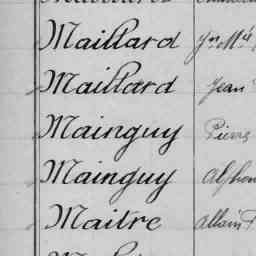 Maillard Jn Mie
Maillard Jean
Mainguy Pierre
Mainguy Alphon
Maitre Allain